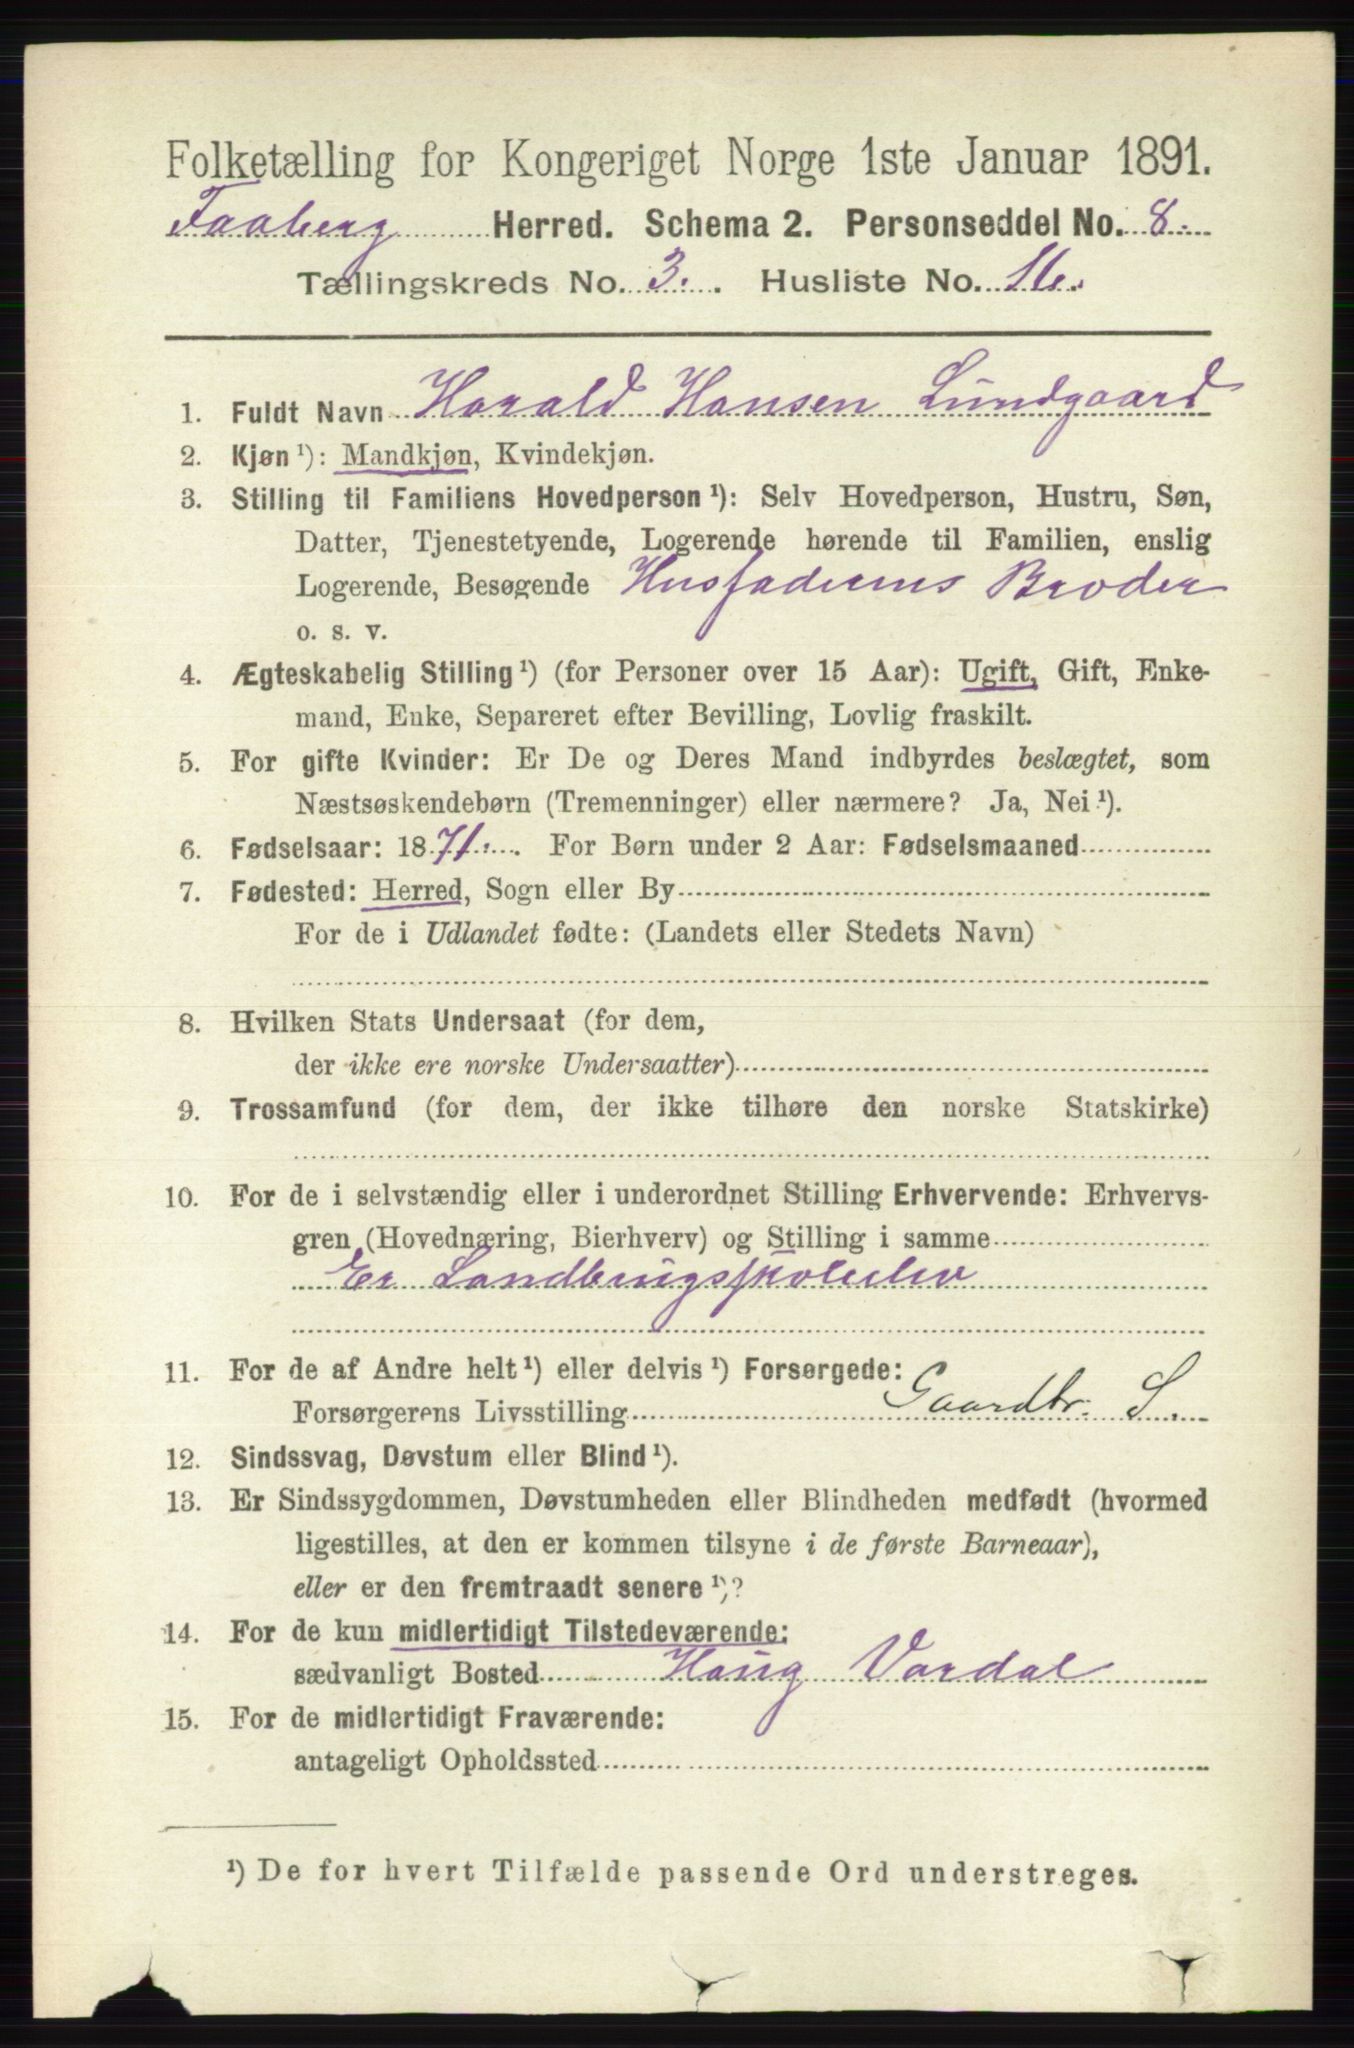 Folketælling for Kongeriget Norge 1ste Januar 1891.
Faaberg Herred. Schema 2. Personseddel No. 8.
Tællingskreds No. 3. Husliste No. 16.
1. Fuldt Navn Harald Hansen Lundgaard
2. Kjøn ¹): Mandkjøn, Kvindekjøn.
3. Stilling til Familiens Hovedperson ¹): Selv Hovedperson, Hustru, Søn,
Datter, Tjenestetyende, Logerende hørende til Familien, enslig
Logerende, Besøgende Husfaderens Broder
o. s. v.
4. Ægteskabelig Stilling ¹) (for Personer over 15 Aar): Ugift, Gift, Enke-
mand, Enke, Separeret efter Bevilling, Lovlig fraskilt.
5. For gifte Kvinder: Er De og Deres Mand indbyrdes beslægtet, som
Næstsøskendebørn (Tremenninger) eller nærmere? Ja, Nei ¹).
6. Fødselsaar: 1871. For Børn under 2 Aar: Fødselsmaaned
7. Fødested: Herred, Sogn eller By
For de i Udlandet fødte: (Landets eller Stedets Navn)
8. Hvilken Stats Undersaat (for dem,
der ikke ere norske Undersaatter)
9. Trossamfund (for dem, der ikke tilhøre den norske Statskirke)
10. For de i selvstændig eller i underordnet Stilling Erhvervende: Erhvervs-
gren (Hovednæring, Bierhverv) og Stilling i samme
Er Landbrugsskoleelev
11. For de af Andre helt ¹) eller delvis ¹) Forsørgede:
Forsørgerens Livsstilling Gaardbr. S.
12. Sindssvag, Døvstum eller Blind ¹).
13. Er Sindssygdommen, Døvstumheden eller Blindheden medfødt (hvormed
ligestilles, at den er kommen tilsyne i de første Barneaar),
eller er den fremtraadt senere ¹)?
14. For de kun midlertidigt Tilstedeværende:
sædvanligt Bosted Haug Vardal
15. For de midlertidigt Fraværende:
antageligt Opholdssted
¹) De for hvert Tilfælde passende Ord understreges.